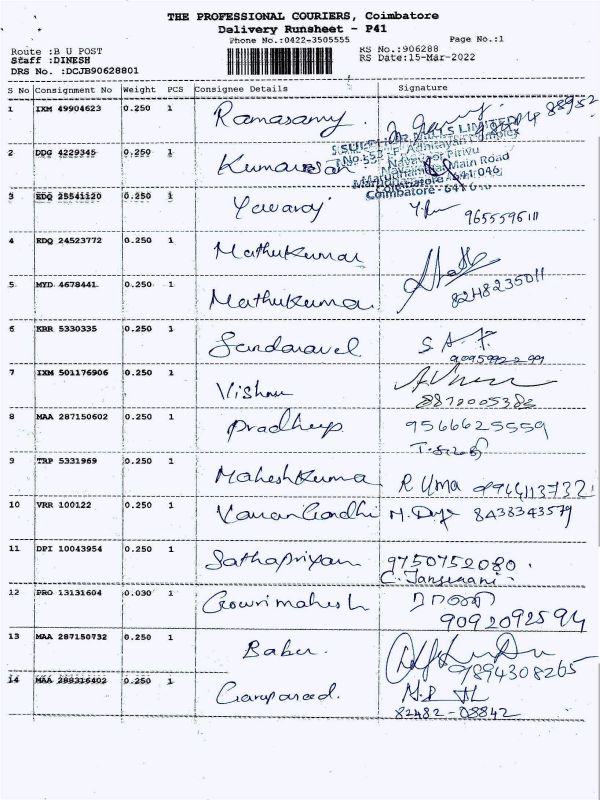 THE PROFESSIONAL COURIERS, Coimbatore
Delivery Runsheet - P41
Phone No.:0422-3505555 Page No.:1
Route :B U POST RS No.:906288
Staff :DINESH RS Date:15-Mar-2022
DRS No. :DCJB90628801
S No Consignment No Weight PCS Consignee Details Signature
1 IXM 49904623 0.250 1 Ramasamy.
2 DDG 4229345 0.250 1 Kumaresan
No.53 Main Road
Coimbatore - 641 046
3 EDQ 25541120 0.250 1 Yuvaraj 9655596111
4 EDQ 24523772 0.250 1 Mathukumar
5 MYD 4678441 0.250 1 Mathukuma 8248235011
6 KRR 5330335 0.250 1 Sandaravel
7 IXM 501176906 0.250 1 Vishnu 8870005382
8 MAA 287150602 0.250 1 Pradheep 9566625559
9 TRP 5331969 0.250 1 MaheshKuma R Uma 9944113732
10 VRR 100122 0.250 1 8438343579
11 DPI 10043954 0.250 1 Sathapriyan 9750752080.
12 PRO 13131604 0.030 1 Gowrimahesh
9092092594
13 MAA 287150732 0.250 1 Baber. 9894308265
14 MAA 288316402 0.250 1
82482-08842